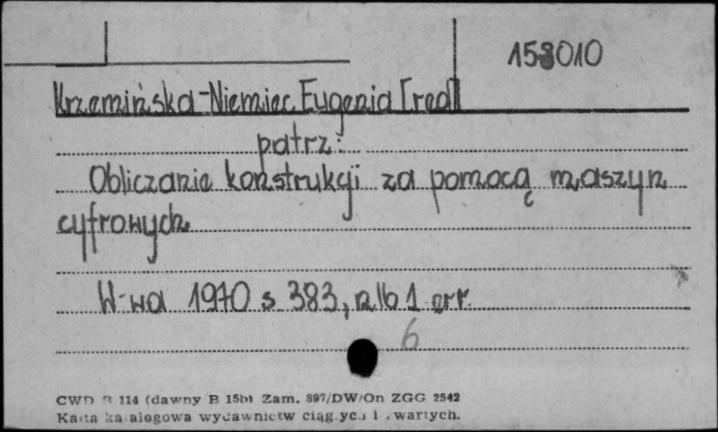 158010
Krzemińska-Niemiec Eugenia [red]
patrz:
Obliczanie konstrukcji za pomocą maszyn
cyfrowych
W-wa 1970 s. 383, nlb 1 err.
6
CWD B 114 (dawny B 15b) Zam. 897/DW/On ZGG 2542
Karta katalogowa wydawnictw ciągłych i zwartych.